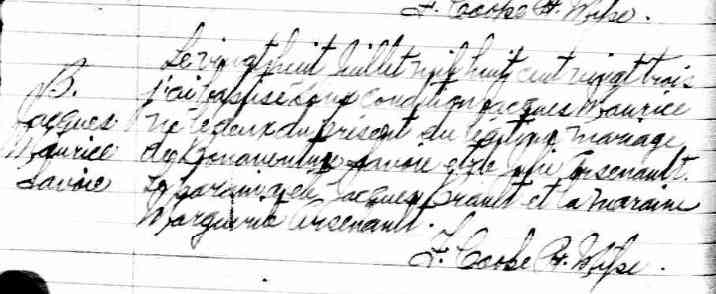 T. Cooke Pt. Miss.
B.
Jacques
Maurice
Savoie
Le vingt huit Juillet mil huit cent vingt trois
j'ai baptisé sous condition Jacques Maurice
né le deux du présent du légitime mariage
de Bonaventure Savoie et de Arsenault.
Le parain a été Jacques et la maraine
Marguerite Arsenault.
T. Cooke Pt. Miss.